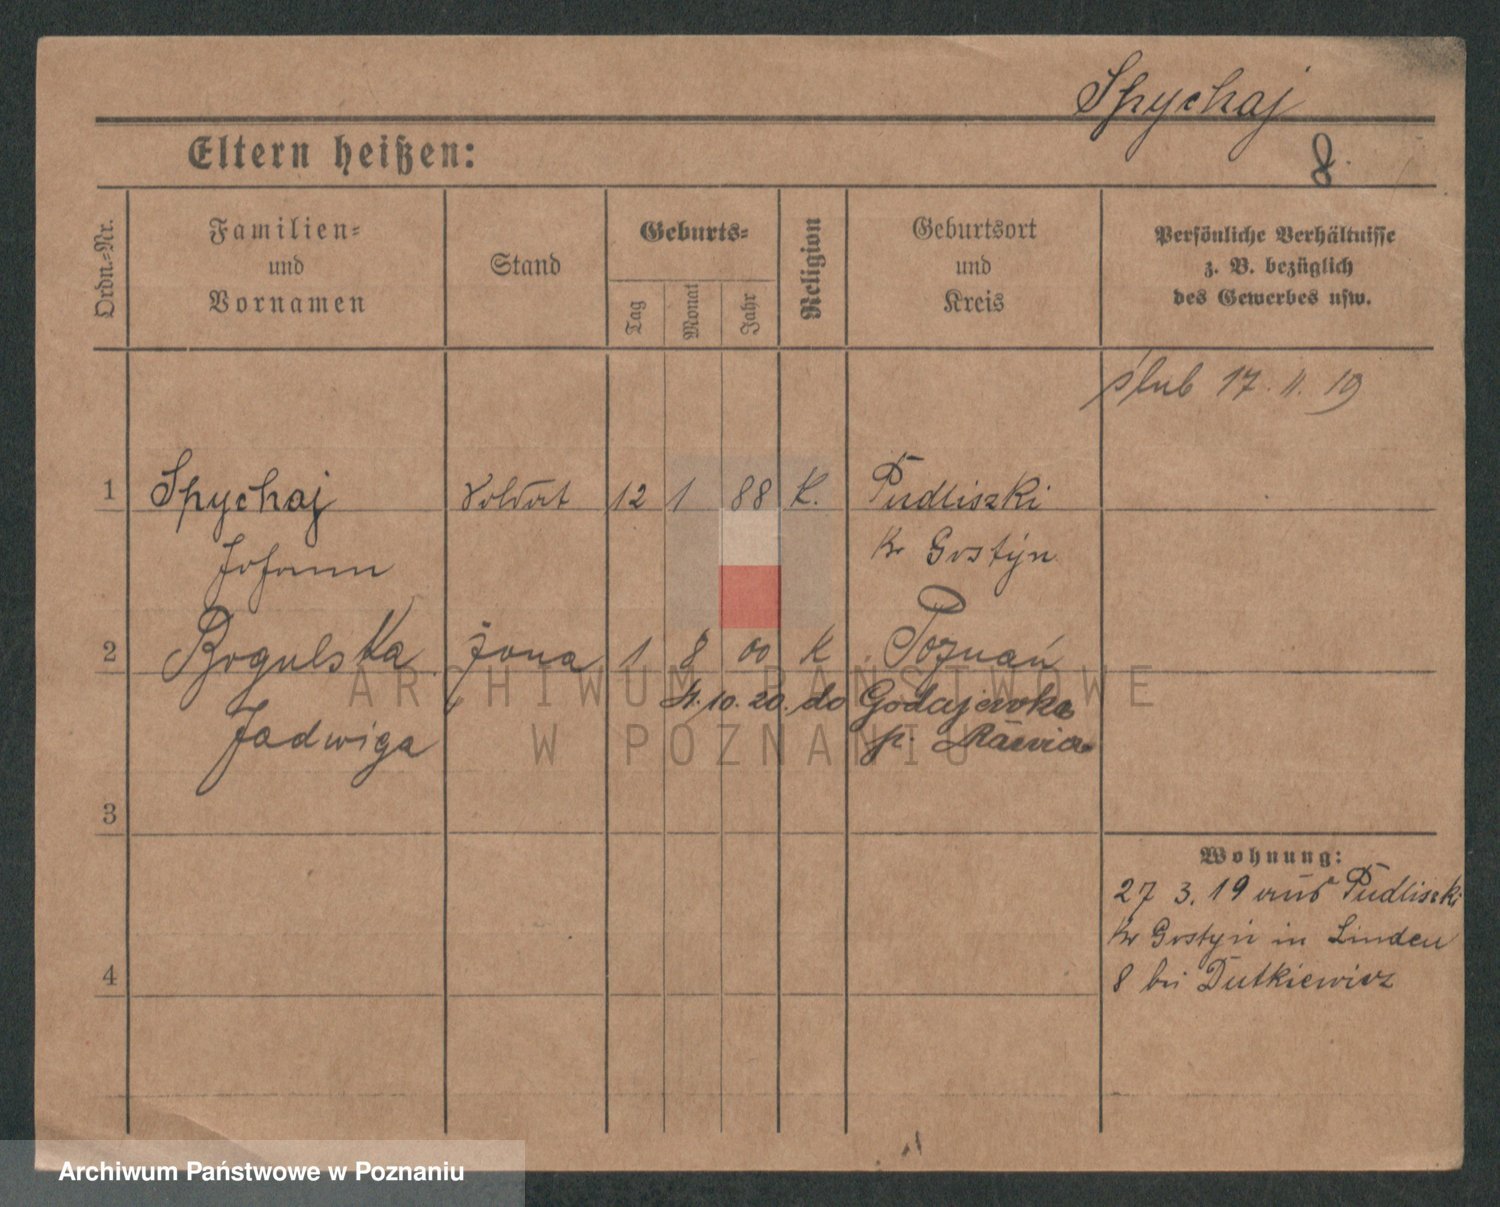 Spychaj
8.
Eltern heißen:
Ordn.-Nr.
Familien-
und
Vornamen
Stand
Geburts-
Tag
Monat
Jahr
Religion
Geburtsort
und
Kreis
Persönliche Verhältnisse
z. B. bezüglich
des Gewerbes usw.
ślub 17. 11. 19
1 Spychaj Soldat 12 1 88 K. Pudliszki
Johann Kr Gostyn
2 Bogulska żona 1 8 00 K Poznań
4. 10. 20. do Godajewka
Jadwiga p.
3
4
Wohnung:
27 3. 19 aus Pudliszki
Kr Gostyń in Linden
8 bei Dutkiewicz
ARCHIWUM PAŃSTWOWE
W POZNANIU
Archiwum Państwowe w Poznaniu